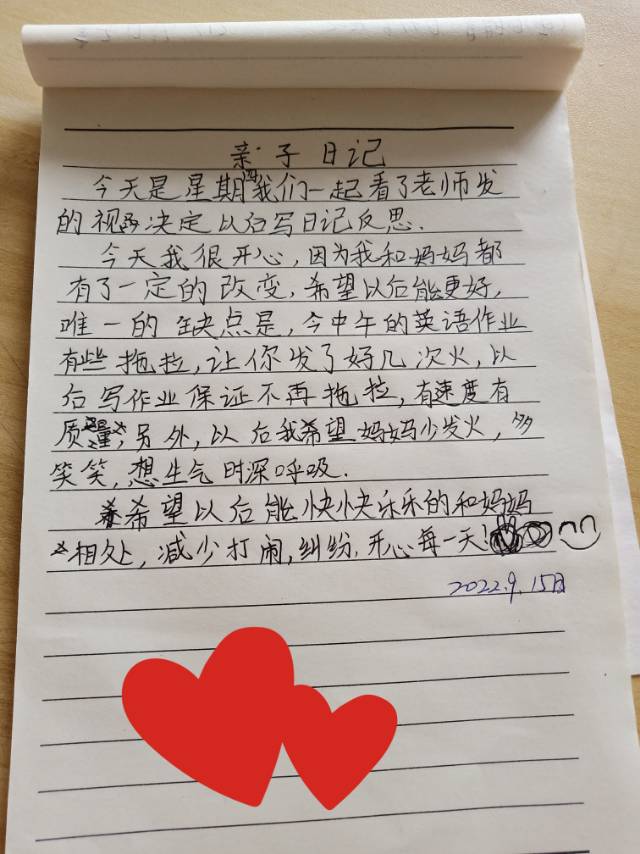 亲子日记
今天是星期四我们一起看了老师发
的视频决定以后写日记反思.
今天我很开心,因为我和妈妈都
有了一定的改变,希望以后能更好,
唯一的缺点是,今中午的英语作业
有些拖拉,让你发了好几次火,以
后写作业保证不再拖拉,有速度有
质量,另外,以后我希望妈妈少发火,多
笑笑,想生气时深呼吸.
希望以后能快快乐乐的和妈妈
相处,减少打闹,纠纷,开心每一天!
2022.9.15日